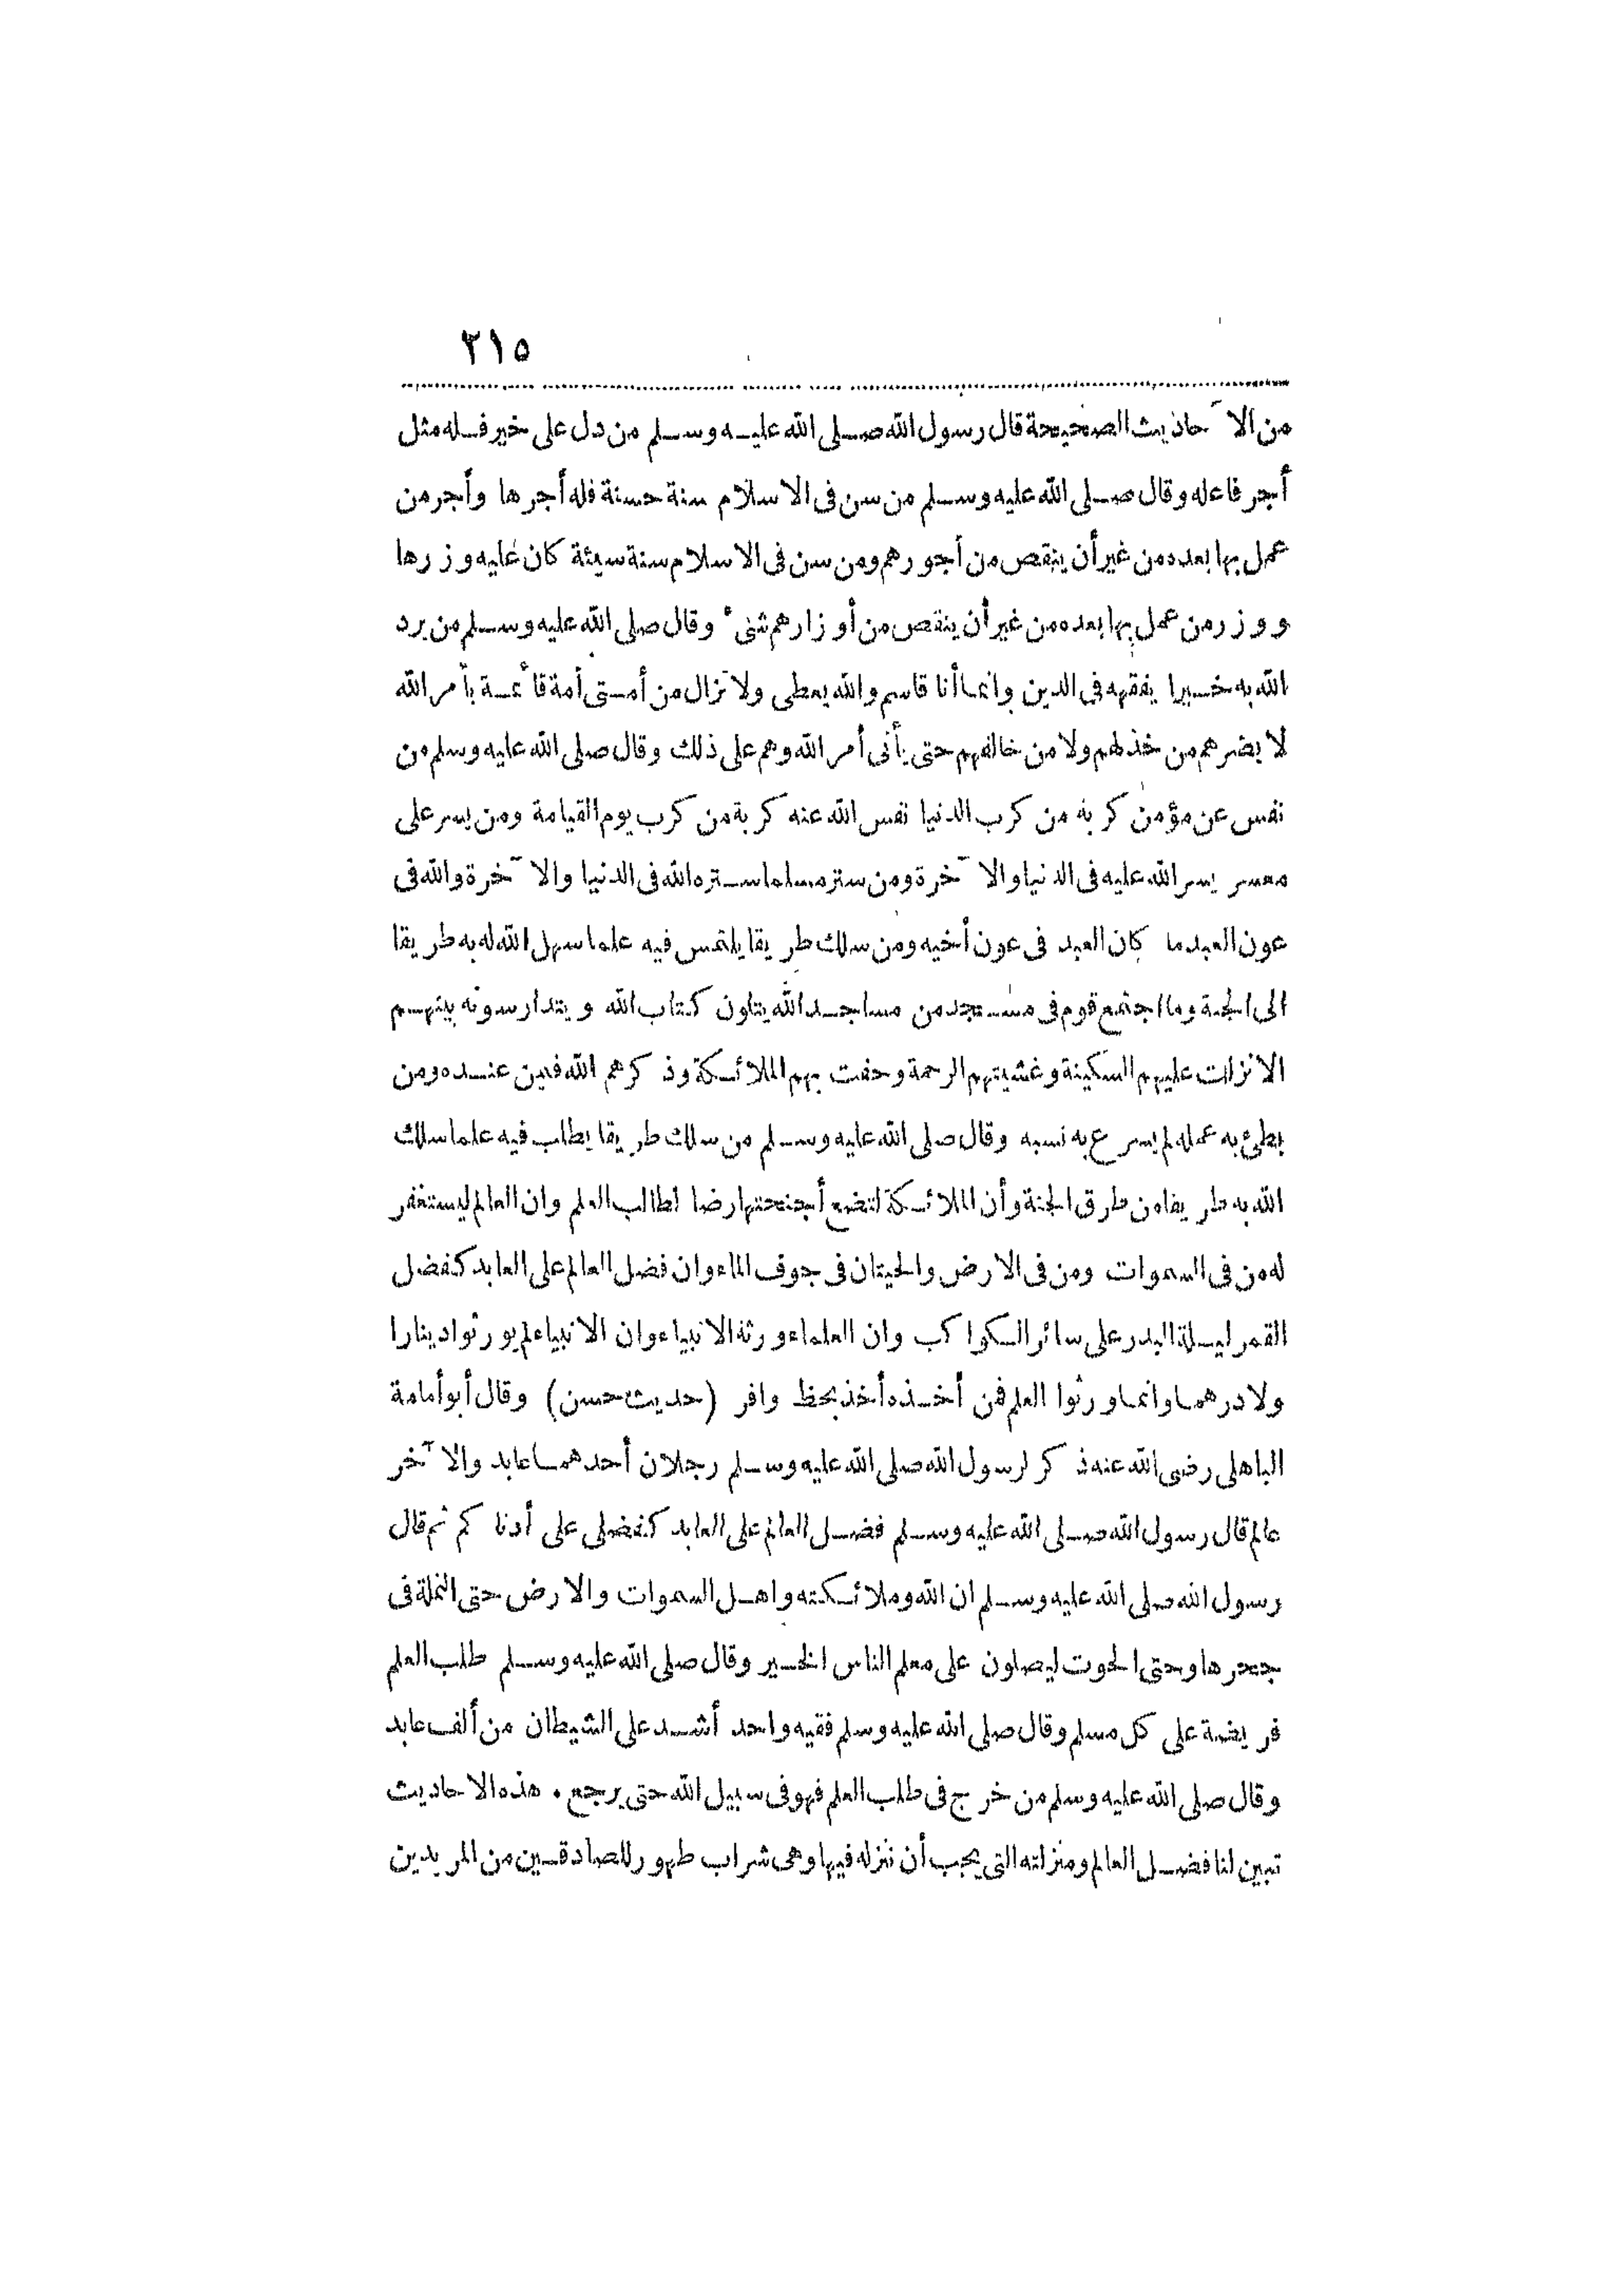 ٢١٥
من الآحاديث الصحيحة قال رسول الله صلى الله عليه وسلم من دل على خير فله مثل
أجر فاعله وقال صلى الله عليه وسلم من سن فى الاسلام سنة حسنة فله أجرها وأجر من
عمل بها بعده من غير أن ينقص من أجورهم ومن سن فى الاسلام سنة سيئة كان عليه وزرها
ووزر من عمل بها بعده من غير أن ينقص من أوزارهم شئ وقال صلى الله عليه وسلم من يرد
الله به خيرا يفقهه فى الدين وانما أنا قاسم والله يعطى ولا تزال من أمتى أمة قائمة بأمر الله
لا يضرهم من خذلهم ولا من خالفهم حتى يأتى أمر الله وهم على ذلك وقال صلى الله عليه وسلم من
نفس عن مؤمن كربة من كرب الدنيا نفس الله عنه كربة من كرب يوم القيامة ومن يسر على
معسر يسر الله عليه فى الدنيا والآخرة ومن ستر مسلما ستره الله فى الدنيا والآخرة والله فى
عون العبد ما كان العبد فى عون أخيه ومن سلك طريقا يلتمس فيه علما سهل الله له به طريقا
الى الجنة وما اجتمع قوم فى مسجد من مساجد الله يتلون كتاب الله ويتدارسونه بينهم
الا نزلت عليهم السكينة وغشيتهم الرحمة وحفت بهم الملائكة وذكرهم الله فمين عنده ومن
بطئ به عمله لم يسرع به نسبه وقال صلى الله عليه وسلم من سلك طريقا يطلب فيه علما سلك
الله به طريقا من طرق الجنة وأن الملائكة لتضع أجنحتها رضا لطالب العلم وان العالم ليستغفر
له من فى السموات ومن فى الارض والحيتان فى جوف الماء وان فضل العالم على العابد كفضل
القمر ليلة البدر على سائر الكواكب وان العلماء ورثة الانبياء وان الانبياء لم يورثوا دينارا
ولا درهما وانما ورثوا العلم فمن أخذه أخذ بحظ وافر (حديث حسن) وقال أبو أمامة
الباهلى رضى الله عنه ذكر لرسول الله صلى الله عليه وسلم رجلان أحدهما عابد والآخر
عالم قال رسول الله صلى الله عليه وسلم فضل العالم على العابد كفضلى على أدناكم ثم قال
رسول الله صلى الله عليه وسلم ان الله وملائكته واهل السموات والارض حتى النملة فى
جحرها وحتى الحوت ليصلون على معلم الناس الخير وقال صلى الله عليه وسلم طلب العلم
فريضة على كل مسلم وقال صلى الله عليه وسلم فقيه واحد أشد على الشيطان من ألف عابد
وقال صلى الله عليه وسلم من خرج فى طلب العلم فهو فى سبيل الله حتى يرجع . هذه الاحاديث
تبين لنا فضل العالم ومنزلته التى يجب أن ننزله فيها وهى شراب طهور للصادقين من المريدين